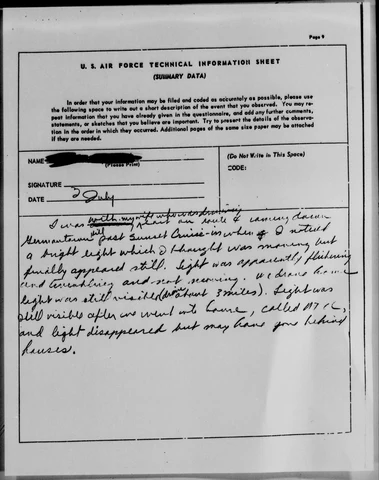 Page 9
U. S. AIR FORCE TECHNICAL INFORMATION SHEET
(SUMMARY DATA)
In order that your information may be filed and coded as accurately as possible, please use
the following space to write out a short description of the event that you observed. You may re-
peat information that you have already given in the questionnaire, and add any further comments,
statements, or sketches that you believe are important. Try to present the details of the observa-
tion in the order in which they occurred. Additional pages of the same size paper may be attached
if they are needed.
NAME
(Please Print)
(Do Not Write in This Space)
CODE:
SIGNATURE
DATE 2 July
I was with my wife who was driving on route coming down
Germantown hill past Sunset Cruise-in when I noticed
a bright light which I thought was moving but
finally appeared still. Light was apparently flickering
and and not moving. We drove home
light was still visible (about 3 miles). Light was
still visible after we went into house, called
and light disappeared but may have gone behind
houses.